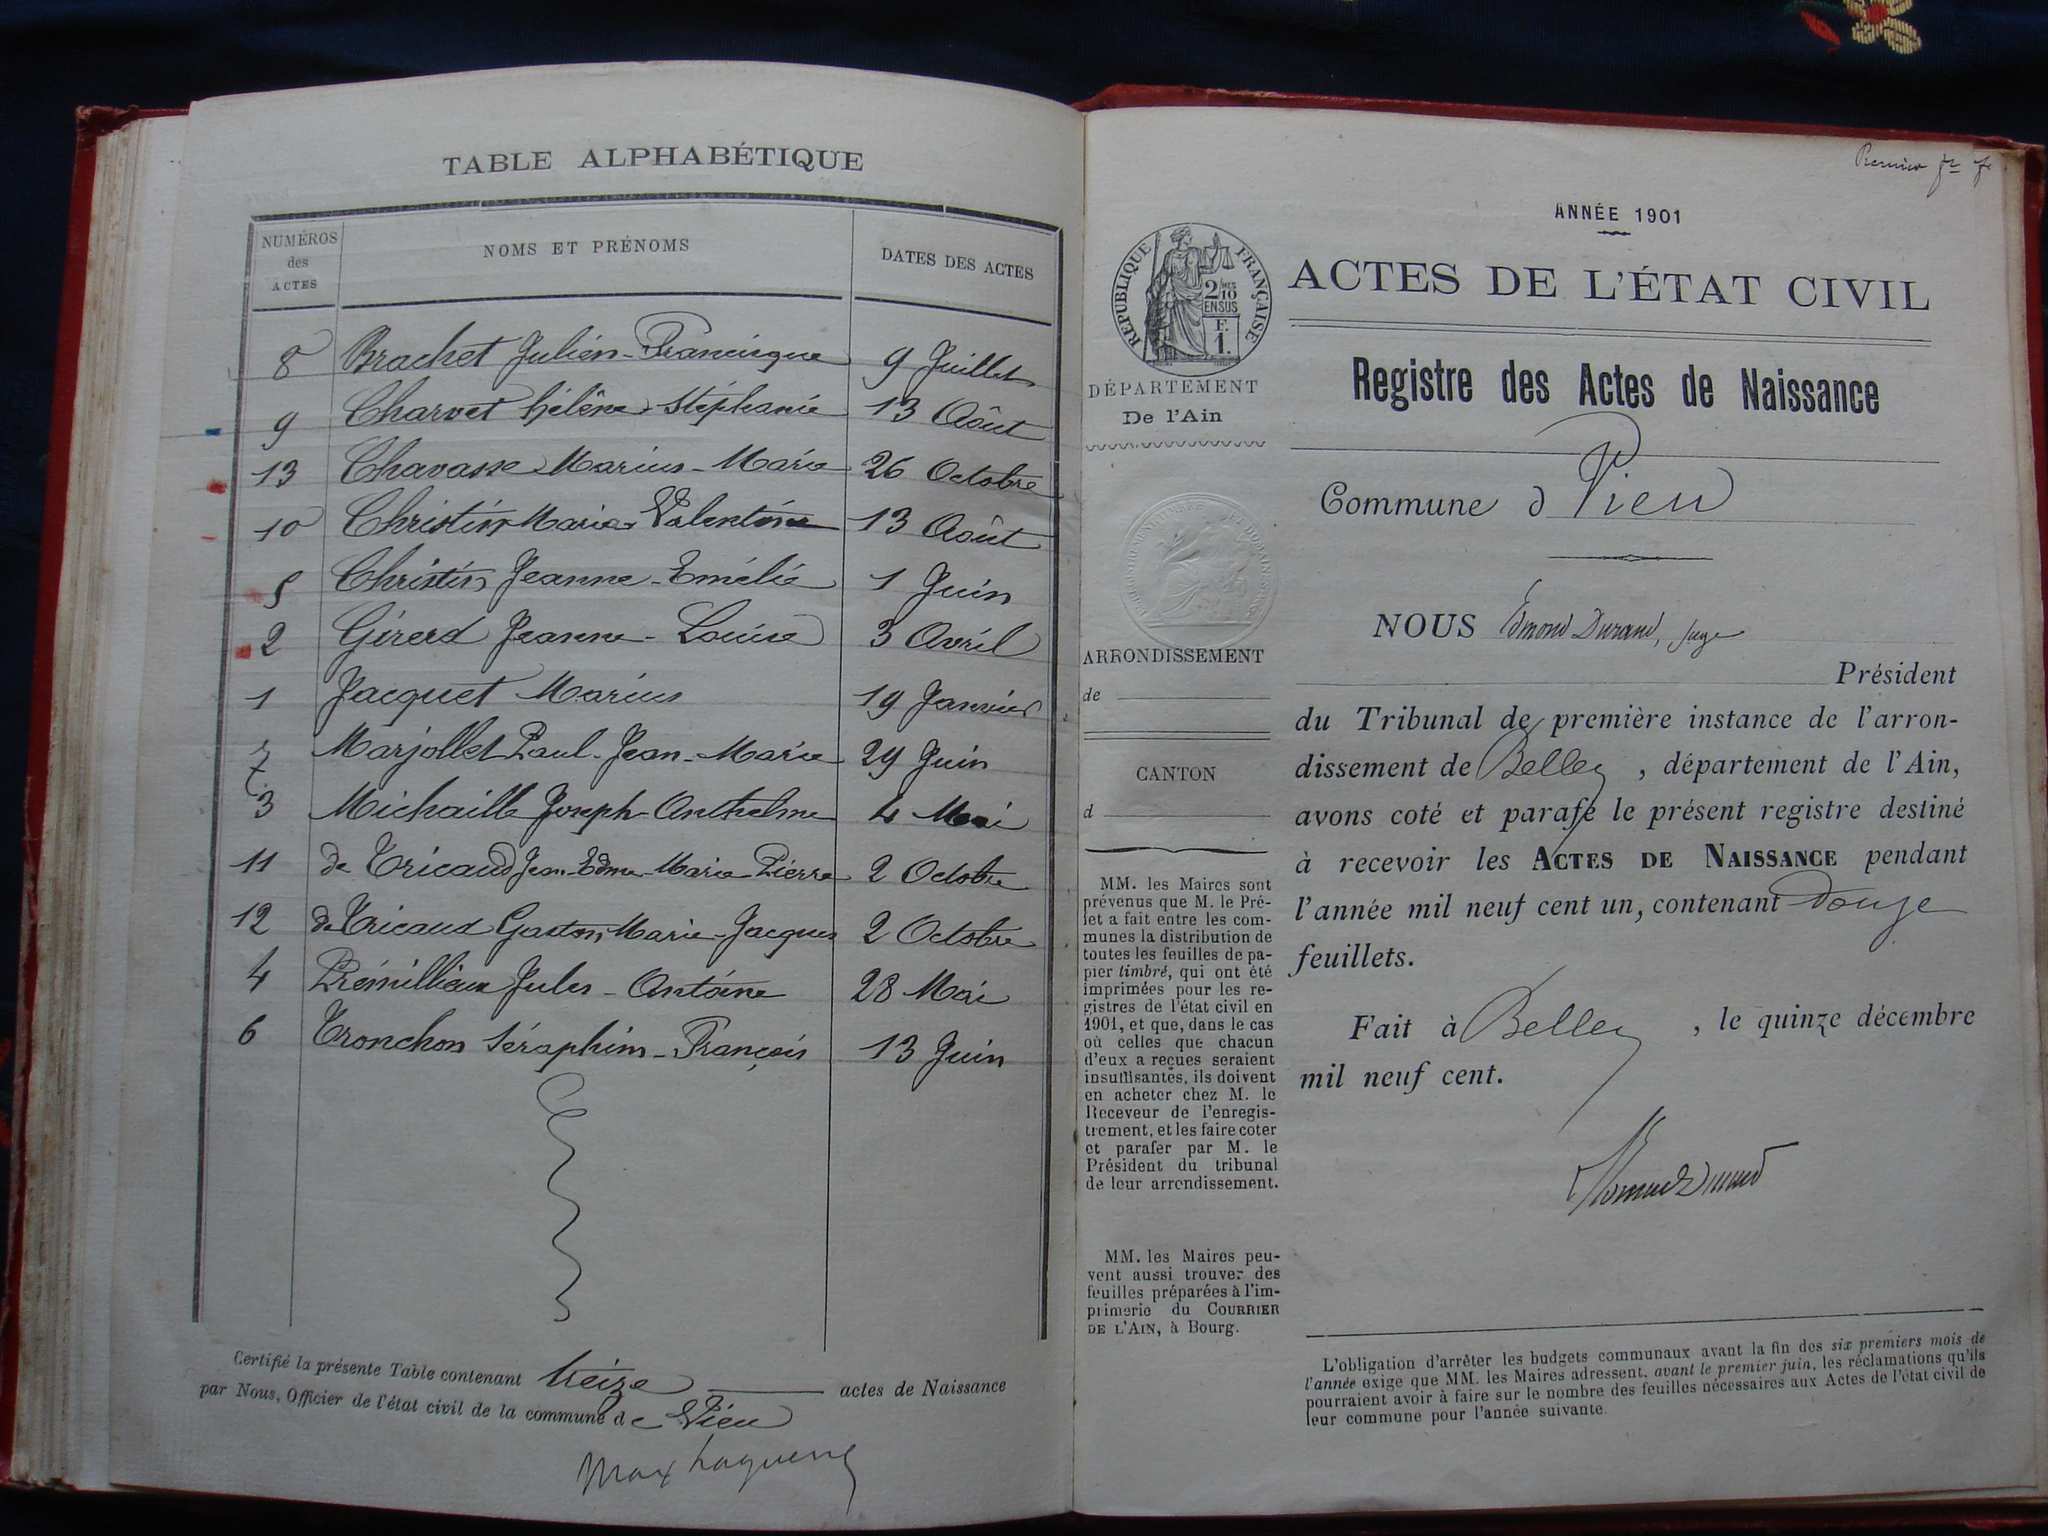 TABLE ALPHABÉTIQUE
NUMÉROS des ACTES NOMS ET PRÉNOMS DATES DES ACTES
8 Brachet Julien-Francisque 9 Juillet
9 Charvet Hélène-Stéphanie 13 Août
13 Chavasse Marius-Marie 26 Octobre
10 Christin Marie-Valentine 13 Août
5 Christin Jeanne-Emélie 1 Juin
2 Girerd Jeanne-Louise 3 Avril
1 Jacquet Marius 19 Janvier
7 Marjollet Paul-Jean-Marie 29 Juin
3 Michaille Joseph-Anthelme 4 Mai
11 de Tricaud Jean-Edme-Marie-Pierre 2 Octobre
12 de Tricaud Gaston-Marie-Jacques 2 Octobre
4 Prémillieux Jules-Antoine 28 Mai
6 Tronchon Séraphim-François 13 Juin
Certifié la présente Table contenant treize actes de Naissance
par Nous, Officier de l'état civil de la commune de Vieu
Max
Premier
ANNÉE 1901
RÉPUBLIQUE FRANÇAISE
2/10
EN SUS
F.
1.
DÉPARTEMENT
De l'Ain
ARRONDISSEMENT
de
CANTON
d
MM. les Maires sont
prévenus que M. le Pré-
fet a fait entre les com-
munes la distribution de
toutes les feuilles de pa-
pier timbré, qui ont été
imprimées pour les re-
gistres de l'état civil en
1901, et que, dans le cas
où celles que chacun
d'eux a reçues seraient
insuffisantes, ils doivent
en acheter chez M. le
Receveur de l'enregis-
trement, et les faire coter
et parafer par M. le
Président du tribunal
de leur arrondissement.
MM. les Maires peu-
vent aussi trouver des
feuilles préparées à l'im-
primerie du COURRIER
DE L'AIN, à Bourg.
ACTES DE L'ÉTAT CIVIL
Registre des Actes de Naissance
Commune d Vieu
NOUS Edmond Durand, juge
Président
du Tribunal de première instance de l'arron-
dissement de Belley, département de l'Ain,
avons coté et parafé le présent registre destiné
à recevoir les ACTES DE NAISSANCE pendant
l'année mil neuf cent un, contenant douze
feuillets.
Fait à Belley, le quinze décembre
mil neuf cent.
Edmond Durand
L'obligation d'arrêter les budgets communaux avant la fin des six premiers mois de
l'année exige que MM. les Maires adressent, avant le premier juin, les réclamations qu'ils
pourraient avoir à faire sur le nombre des feuilles nécessaires aux Actes de l'état civil de
leur commune pour l'année suivante.